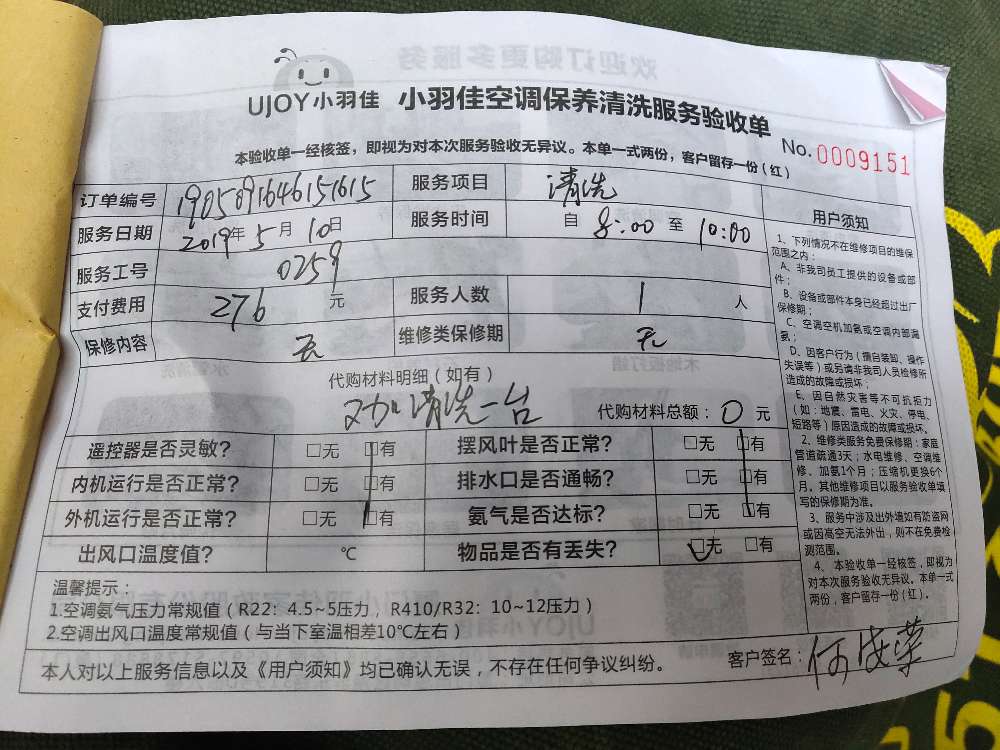 UJOY小羽佳 小羽佳空调保养清洗服务验收单
No. 0009151
本验收单一经核签，即视为对本次服务验收无异议。本单一式两份，客户留存一份(红)
订单编号 1905091646151615 服务项目 清洗
服务日期 2019年5月10日 服务时间 自 8:00 至 10:00
服务工号 0259
支付费用 276 元 服务人数 1 人
保修内容 无 维修类保修期 无
代购材料明细(如有)
清洗一台 代购材料总额：0 元
遥控器是否灵敏? □无 □有 摆风叶是否正常? □无 □有
内机运行是否正常? □无 □有 排水口是否通畅? □无 □有
外机运行是否正常? □无 □有 氨气是否达标? □无 □有
出风口温度值? ℃ 物品是否有丢失? □无 □有
温馨提示：
1.空调氨气压力常规值（R22：4.5~5压力，R410/R32：10~12压力）
2.空调出风口温度常规值（与当下室温相差10℃左右）
本人对以上服务信息以及《用户须知》均已确认无误，不存在任何争议纠纷。
客户签名：何
用户须知
1、下列情况不在维修项目的维保
范围之内：
A、非我司员工提供的设备或部
件；
B、设备或部件本身已经超过出厂
保修期；
C、空调空机加氨或空调内部漏
氨；
D、因客户行为（擅自装卸、操作
失误等）或另请非我司人员检修所
造成的故障或损坏；
E、因自然灾害等不可抗拒力
（如：地震、雷电、火灾、停电、
短路等）原因造成的故障或损坏。
2、维修类服务免费保修期：家庭
管道疏通3天；水电维修、空调维
修、加氨1个月；压缩机更换6个
月。其他维修项目以服务验收单填
写的保修期为准。
3、服务中涉及出外墙如有防盗网
或因高空无法外出，则不在免费检
测范围。
4、本验收单一经核签，即视为
对本次服务验收无异议。本单一式
两份，客户留存一份(红)。